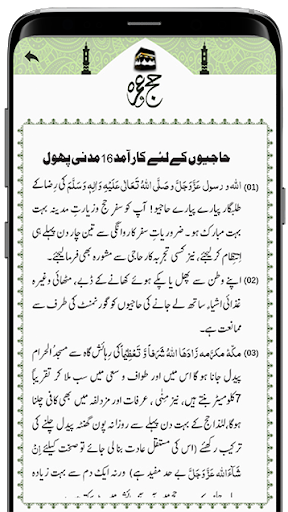 حج و عمرہ
حاجیوں کے لئے کارآمد 16 مدنی پھول
(01) اللہ و رسول عَزَّوَجَلَّ وصَلَّی اللہُ تَعَالٰی عَلَیْہِ وَاٰلِہٖ وَسَلَّم کی رضا کے
طلبگار پیارے پیارے حاجیو! آپ کو سفرِ حج وزیارتِ مدینہ بہت
بہت مبارک ہو۔ ضروریاتِ سفر کا روانگی سے تین چار دن پہلے ہی
اِہتِمام کر لیجئے، نیز کسی تجربہ کار حاجی سے مشورہ بھی فرما لیجئے۔
(02) اپنے وطن سے پھل یا پکے ہوئے کھانے کے ڈبے، مٹھائی وغیرہ
غذائی اشیاء ساتھ لے جانے کی حاجیوں کو گورنمنٹ کی طرف سے
ممانعت ہے۔
(03) مکّۂ مکرّمہ زَادَھَا اللہُ شَرَفًاوَّ تَعْظِیْمًا کی رہائش گاہ سے مسجدُ الحرام
پیدل جانا ہو گا اس میں اور طواف و سعی میں سب ملا کر تقریباً
7 کلومیٹر بنتے ہیں، نیز مِنٰی، عرفات اور مزدلفہ میں بھی کافی چلنا
ہو گا لہٰذا حج کے بہت دن پہلے سے روزانہ پون گھنٹہ پیدل چلنے کی
ترکیب رکھئے (اس کی مستقل عادت بنا لی جائے تو صحت کیلئے اِنْ
شَآءَاللہ عَزَّوَجَلَّ بے حد مفید ہے) ورنہ ایک دم سے بہت زیادہ